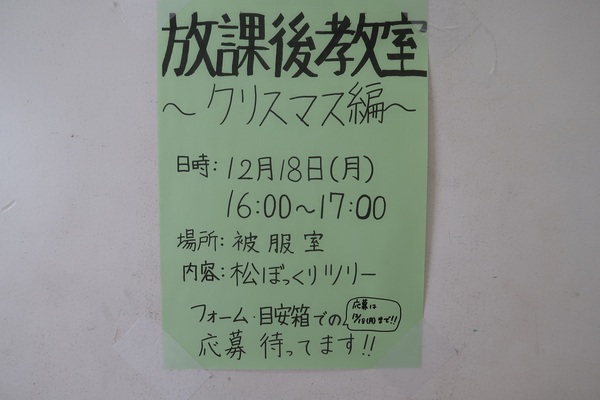 放課後教室
～クリスマス編～
日時:12月18日(月)
16:00～17:00
場所:被服室
内容:松ぼっくりツリー
フォーム・目安箱での
応募は
まで!!
応募 待ってます!!